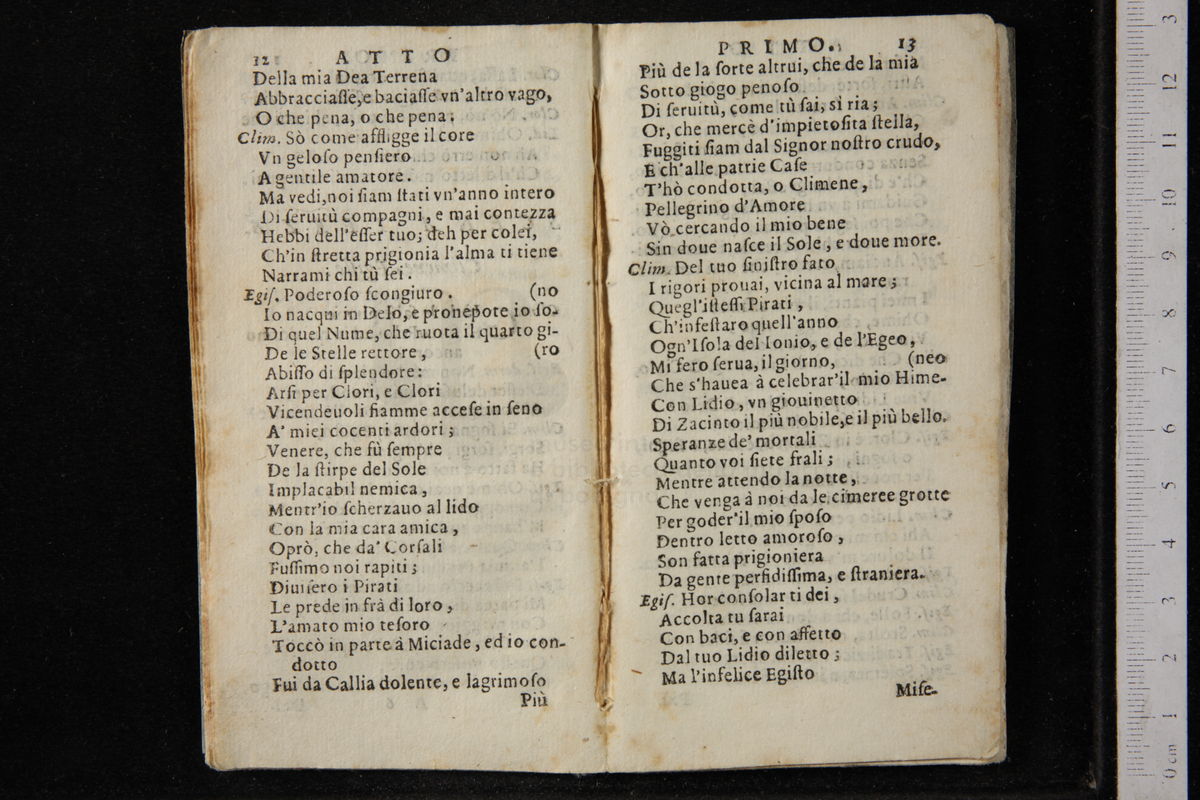 12 ATTO
Della mia Dea Terrena
Abbracciaſſe, e baciaſſe vn'altro vago,
O che pena, o che pena.
Clim. Sò come affligge il core
Vn geloſo penſiero
A gentile amatore.
Ma vedi, noi ſiam ſtati vn'anno intero
Di ſeruitù compagni, e mai contezza
Hebbi dell'eſſer tuo; deh per colei,
Ch'in ſtretta prigionia l'alma ti tiene
Narrami chi tù ſei.
Egiſ. Poderoſo ſcongiuro. (no
Io nacqui in Delo, e pronepote io ſo-
Di quel Nume, che ruota il quarto gi-
De le Stelle rettore, (ro
Abiſſo di ſplendore:
Arſi per Clori, e Clori
Vicendeuoli fiamme acceſe in ſeno
A' miei cocenti ardori;
Venere, che fù ſempre
De la ſtirpe del Sole
Implacabil nemica,
Mentr'io ſcherzauo al lido
Con la mia cara amica,
Oprò, che da' Corſali
Fuſſimo noi rapiti;
Diuiſero i Pirati
Le prede in frà di loro,
L'amato mio teſoro
Toccò in parte à Miciade, ed io con-
dotto
Fui da Callia dolente, e lagrimoſo
Più
PRIMO. 13
Più de la ſorte altrui, che de la mia
Sotto giogo penoſo
Di ſeruitù, come tù ſai, sì ria;
Or, che mercè d'impietoſita ſtella,
Fuggiti ſiam dal Signor noſtro crudo,
E ch'alle patrie Caſe
T'hò condotta, o Climene,
Pellegrino d'Amore
Vò cercando il mio bene
Sin doue naſce il Sole, e doue more.
Clim. Del tuo ſiniſtro fato
I rigori prouai, vicina al mare;
Quegl'iſteſſi Pirati,
Ch'infeſtaro quell'anno
Ogn'Iſola del Ionio, e de l'Egeo,
Mi fero ſerua, il giorno, (neo
Che s'hauea à celebrar'il mio Hime-
Con Lidio, vn giouinetto
Di Zacinto il più nobile, e il più bello.
Speranze de' mortali
Quanto voi ſiete frali;
Mentre attendo la notte,
Che venga à noi da le cimeree grotte
Per goder'il mio ſpoſo
Dentro letto amoroſo,
Son fatta prigioniera
Da gente perfidiſſima, e ſtraniera.
Egiſ. Hor conſolar ti dei,
Accolta tu ſarai
Con baci, e con affetto
Dal tuo Lidio diletto;
Ma l'infelice Egiſto
Miſe-
0 cm 1 2 3 4 5 6 7 8 9 10 11 12 13